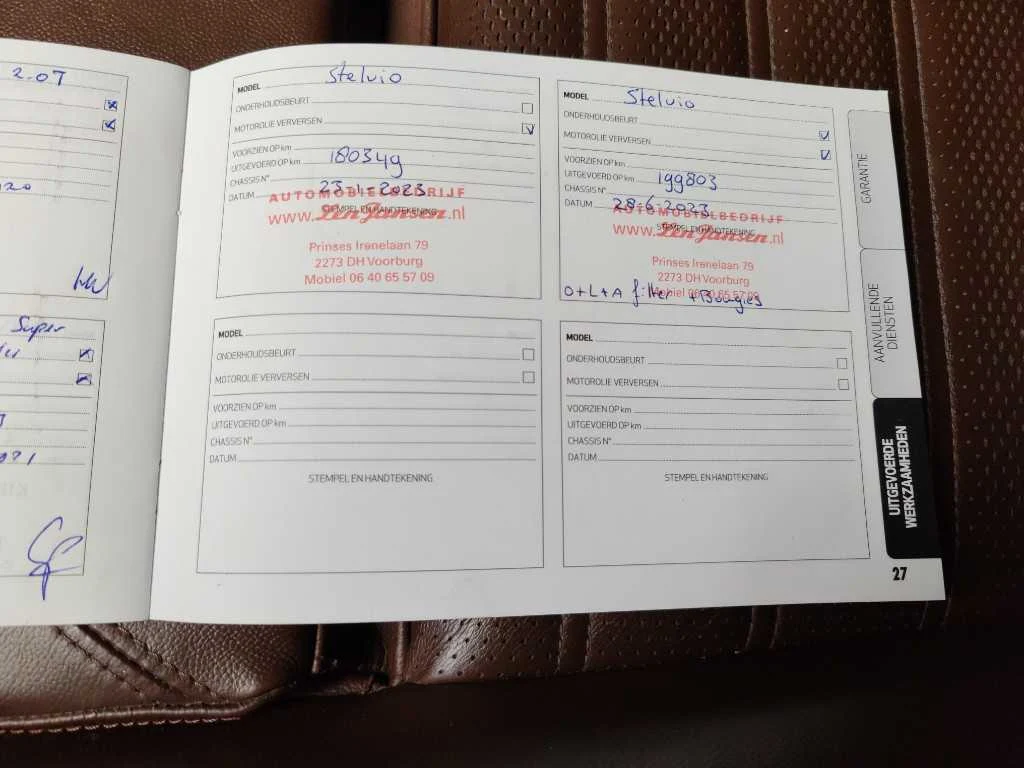 2.0T
Super
MODEL Stelvio
ONDERHOUDSBEURT
MOTOROLIE VERVERSEN
VOORZIEN OP km
UITGEVOERD OP km 180349
CHASSIS N°
DATUM 23-1-2023
STEMPEL EN HANDTEKENING
AUTOMOBIELBEDRIJF
www.Len Jansen.nl
Prinses Irenelaan 79
2273 DH Voorburg
Mobiel 06 40 65 57 09
MODEL Stelvio
ONDERHOUDSBEURT
MOTOROLIE VERVERSEN
VOORZIEN OP km
UITGEVOERD OP km 199803
CHASSIS N°
DATUM 28-6-2023
STEMPEL EN HANDTEKENING
AUTOMOBIELBEDRIJF
www.Len Jansen.nl
Prinses Irenelaan 79
2273 DH Voorburg
Mobiel 06 40 65 57 09
O+L+A filter + Bougies
MODEL
ONDERHOUDSBEURT
MOTOROLIE VERVERSEN
VOORZIEN OP km
UITGEVOERD OP km
CHASSIS N°
DATUM
STEMPEL EN HANDTEKENING
MODEL
ONDERHOUDSBEURT
MOTOROLIE VERVERSEN
VOORZIEN OP km
UITGEVOERD OP km
CHASSIS N°
DATUM
STEMPEL EN HANDTEKENING
GARANTIE
AANVULLENDE
DIENSTEN
UITGEVOERDE
WERKZAAMHEDEN
27